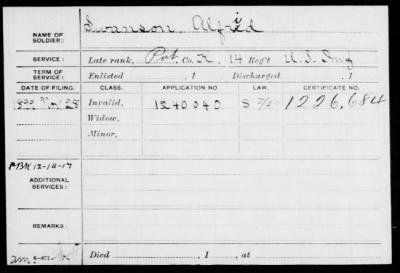 NAME OF SOLDIER: Swanson, Alfrid
SERVICE: Late rank, Pvt. Co. K, 14 Reg't U.S. Inf
TERM OF SERVICE: Enlisted , 1 Discharged , 1
DATE OF FILING. CLASS. APPLICATION NO. LAW. CERTIFICATE NO.
1899 Nov 28 Invalid, 1240040 S 1226,684
Widow,
Minor,
PBK 12-14-17
ADDITIONAL SERVICES:
REMARKS:
Died , 1 , at